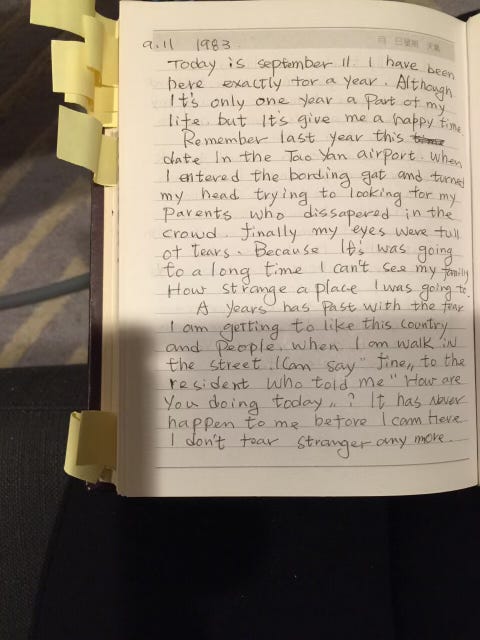 月 日星期 天氣
9.11 1983
Today is september 11. I have been
here exactly for a year. Although
It's only one year a part of my
life. but It's give me a happy time.
Remember last year this time
date in the Tao Yan airport. when
I entered the bording gat and turned
my head trying to looking for my
parents who dissapered in the
crowd. finally my eyes were full
of tears. Because It's was going
to a long time I can't see my family
How strange a place I was going to.
A years has past with the fear
I am getting to like this country
and people. when I am walk in
the street. I can say " fine,, to the
resident who told me " How are
you doing today,, ? It has never
happen to me before I com here
I don't fear stranger any more.